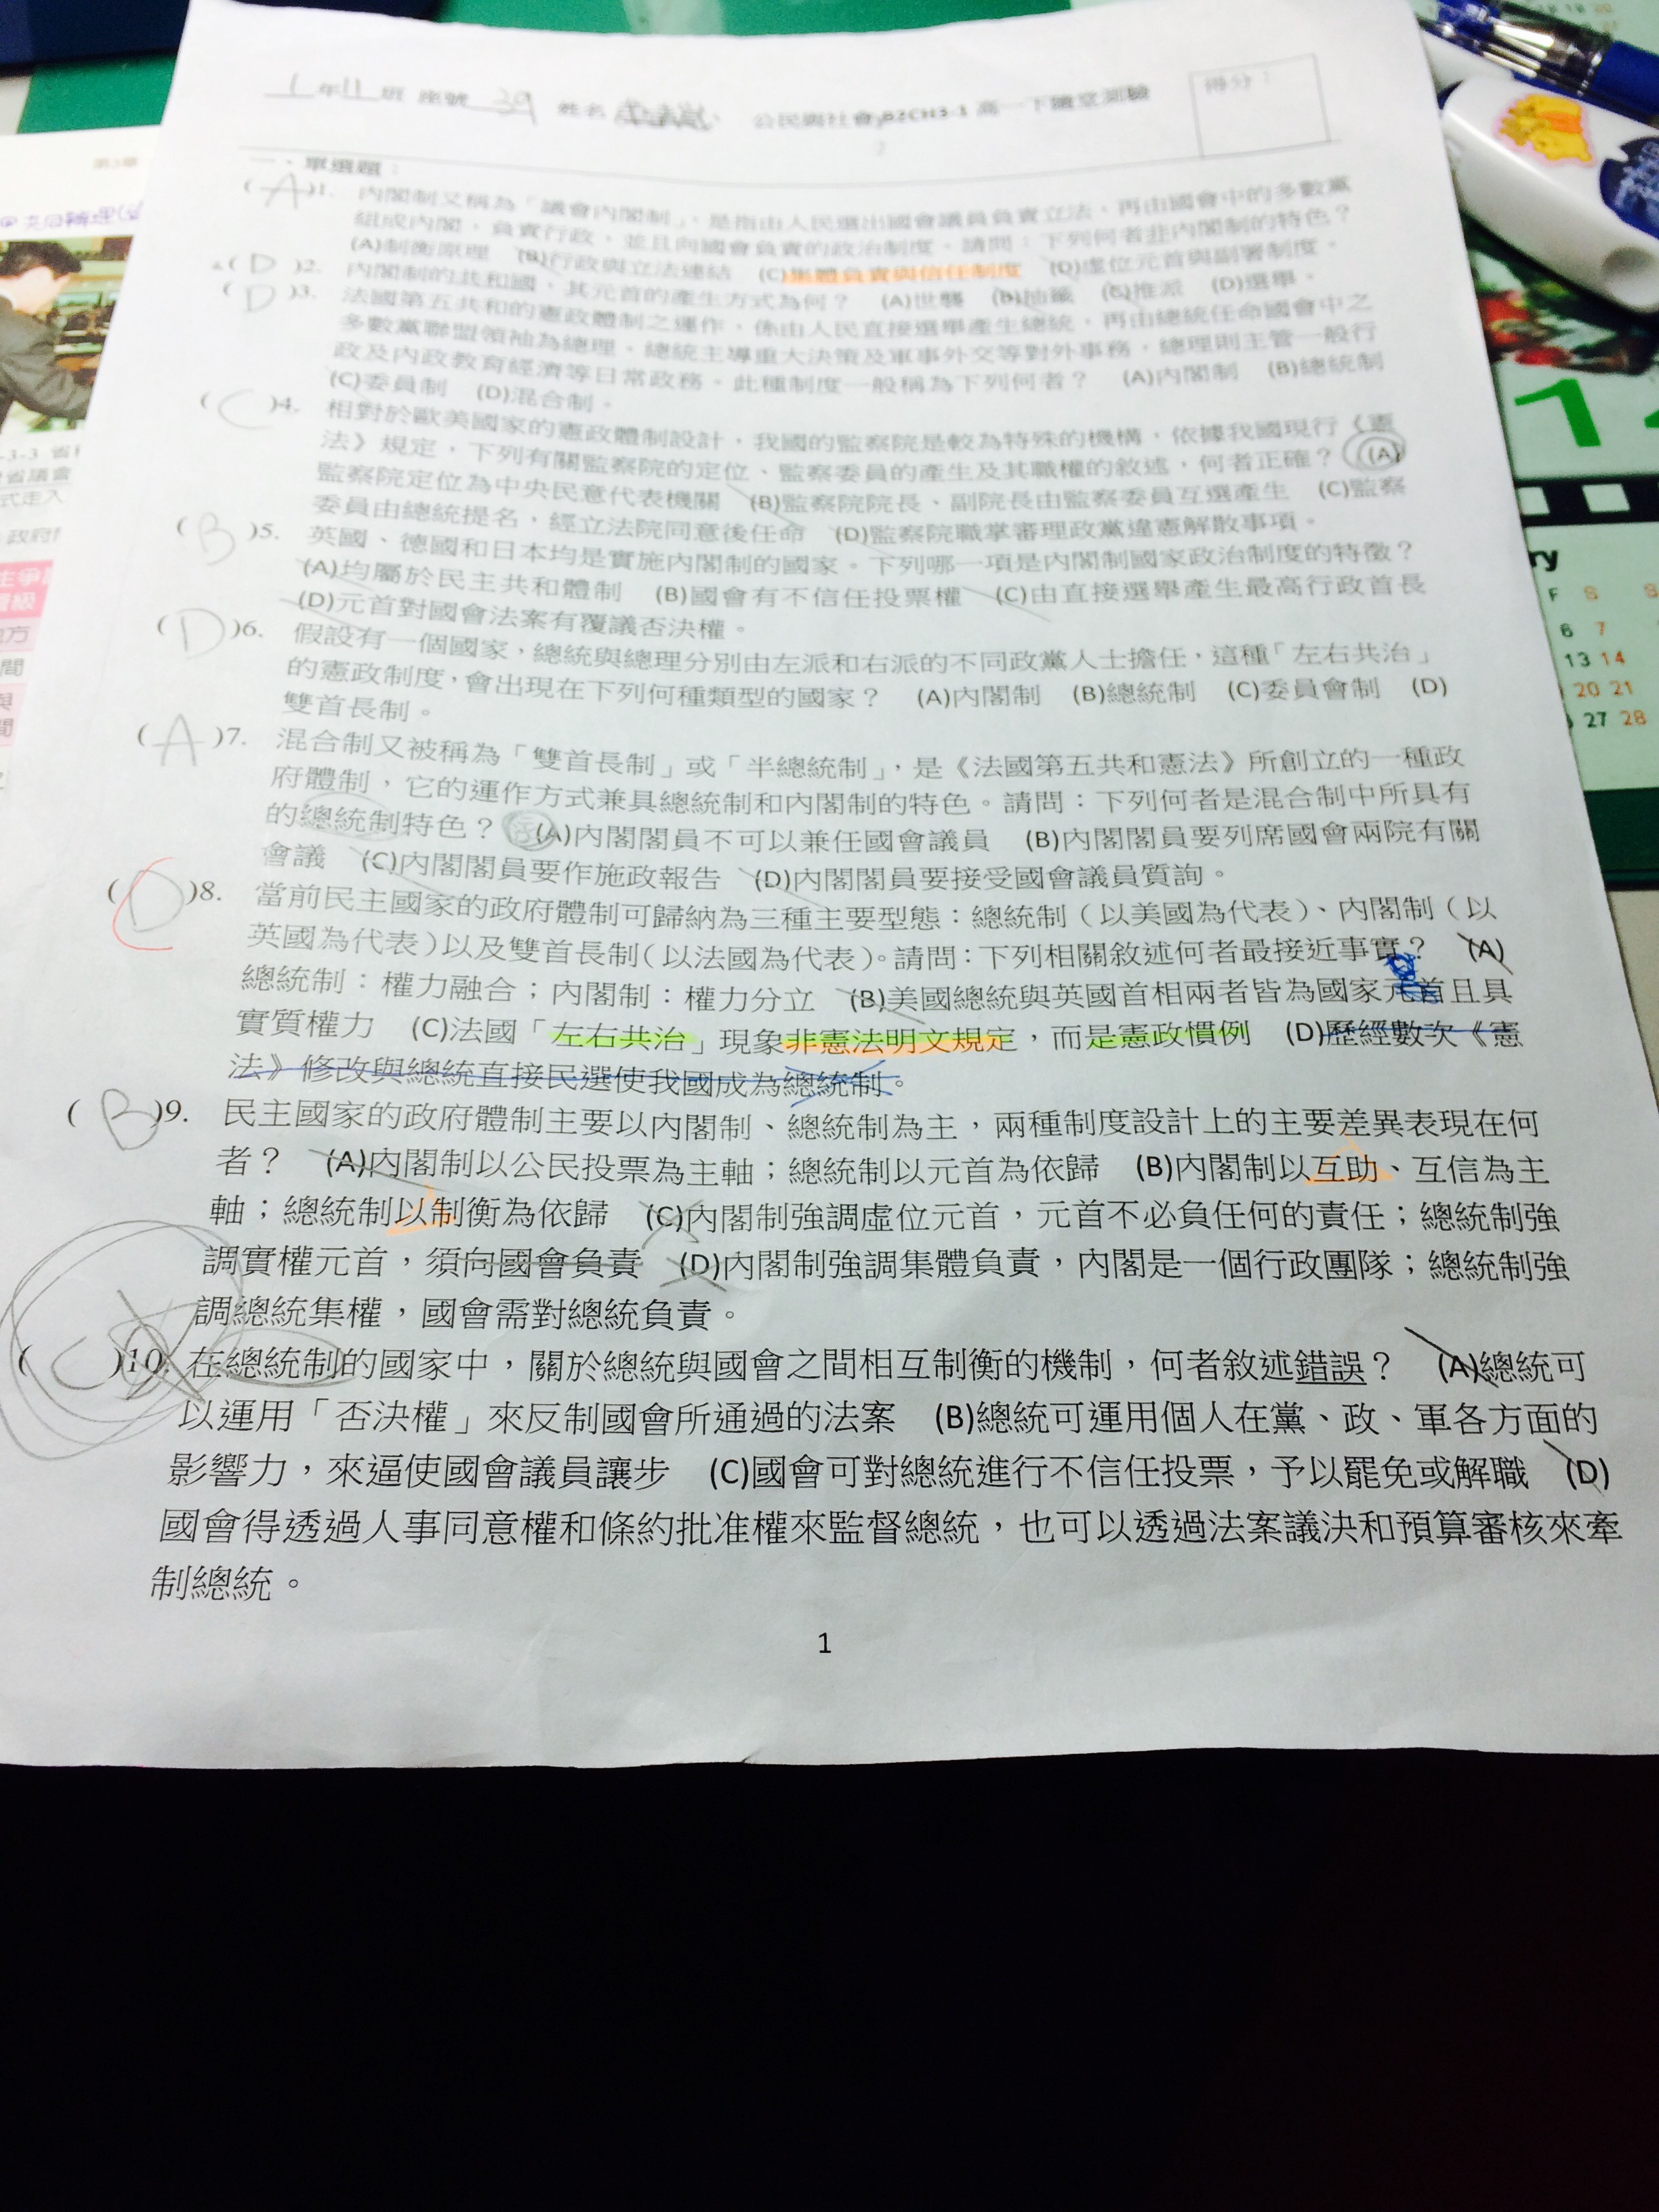 1 年 11 班 座號 39 姓名 公民與社會 B2CH3-1 高一下隨堂測驗 得分：
一、單選題：
(A)1. 內閣制又稱為「議會內閣制」，是指由人民選出國會議員負責立法，再由國會中的多數黨
組成內閣，負責行政，並且向國會負責的政治制度。請問：下列何者非內閣制的特色？
(A)制衡原理 (B)行政與立法連結 (C)集體負責與信任制度 (D)虛位元首與副署制度。
(D)2. 內閣制的共和國，其元首的產生方式為何？ (A)世襲 (B)抽籤 (C)推派 (D)選舉。
(D)3. 法國第五共和的憲政體制之運作，係由人民直接選舉產生總統，再由總統任命國會中之
多數黨聯盟領袖為總理。總統主導重大決策及軍事外交等對外事務，總理則主管一般行
政及內政教育經濟等日常政務。此種制度一般稱為下列何者？ (A)內閣制 (B)總統制
(C)委員制 (D)混合制。
(C)4. 相對於歐美國家的憲政體制設計，我國的監察院是較為特殊的機構，依據我國現行《憲
法》規定，下列有關監察院的定位、監察委員的產生及其職權的敘述，何者正確？ (A)
監察院定位為中央民意代表機關 (B)監察院院長、副院長由監察委員互選產生 (C)監察
委員由總統提名，經立法院同意後任命 (D)監察院職掌審理政黨違憲解散事項。
(B)5. 英國、德國和日本均是實施內閣制的國家。下列哪一項是內閣制國家政治制度的特徵？
(A)均屬於民主共和體制 (B)國會有不信任投票權 (C)由直接選舉產生最高行政首長
(D)元首對國會法案有覆議否決權。
(D)6. 假設有一個國家，總統與總理分別由左派和右派的不同政黨人士擔任，這種「左右共治」
的憲政制度，會出現在下列何種類型的國家？ (A)內閣制 (B)總統制 (C)委員會制 (D)
雙首長制。
(A)7. 混合制又被稱為「雙首長制」或「半總統制」，是《法國第五共和憲法》所創立的一種政
府體制，它的運作方式兼具總統制和內閣制的特色。請問：下列何者是混合制中所具有
的總統制特色？ (A)內閣閣員不可以兼任國會議員 (B)內閣閣員要列席國會兩院有關
會議 (C)內閣閣員要作施政報告 (D)內閣閣員要接受國會議員質詢。
(D)8. 當前民主國家的政府體制可歸納為三種主要型態：總統制（以美國為代表）、內閣制（以
英國為代表）以及雙首長制（以法國為代表）。請問：下列相關敘述何者最接近事實？ (A)
總統制：權力融合；內閣制：權力分立 (B)美國總統與英國首相兩者皆為國家元首且具
實質權力 (C)法國「左右共治」現象非憲法明文規定，而是憲政慣例 (D)歷經數次《憲
法》修改與總統直接民選使我國成為總統制。
(B)9. 民主國家的政府體制主要以內閣制、總統制為主，兩種制度設計上的主要差異表現在何
者？ (A)內閣制以公民投票為主軸；總統制以元首為依歸 (B)內閣制以互助、互信為主
軸；總統制以制衡為依歸 (C)內閣制強調虛位元首，元首不必負任何的責任；總統制強
調實權元首，須向國會負責 (D)內閣制強調集體負責，內閣是一個行政團隊；總統制強
調總統集權，國會需對總統負責。
(C)10. 在總統制的國家中，關於總統與國會之間相互制衡的機制，何者敘述錯誤？ (A)總統可
以運用「否決權」來反制國會所通過的法案 (B)總統可運用個人在黨、政、軍各方面的
影響力，來逼使國會議員讓步 (C)國會可對總統進行不信任投票，予以罷免或解職 (D)
國會得透過人事同意權和條約批准權來監督總統，也可以透過法案議決和預算審核來牽
制總統。
1
F S
6 7
13 14
20 21
27 28